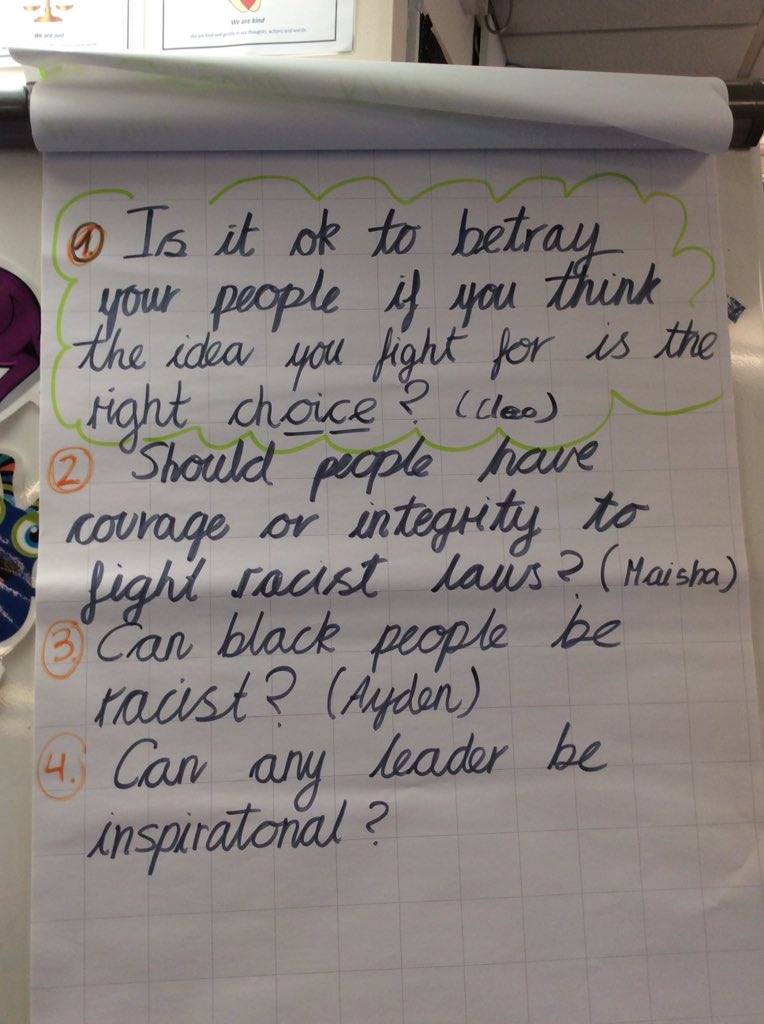 We are Just
We are kind
We are kind and gentle in our thoughts, actions and words.
1. Is it ok to betray
your people if you think
the idea you fight for is the
right choice? (Cleo)
2 Should people have
courage or integrity to
fight racist laws? (Maisha)
3. Can black people be
racist? (Ayden)
4. Can any leader be
inspiratonal?